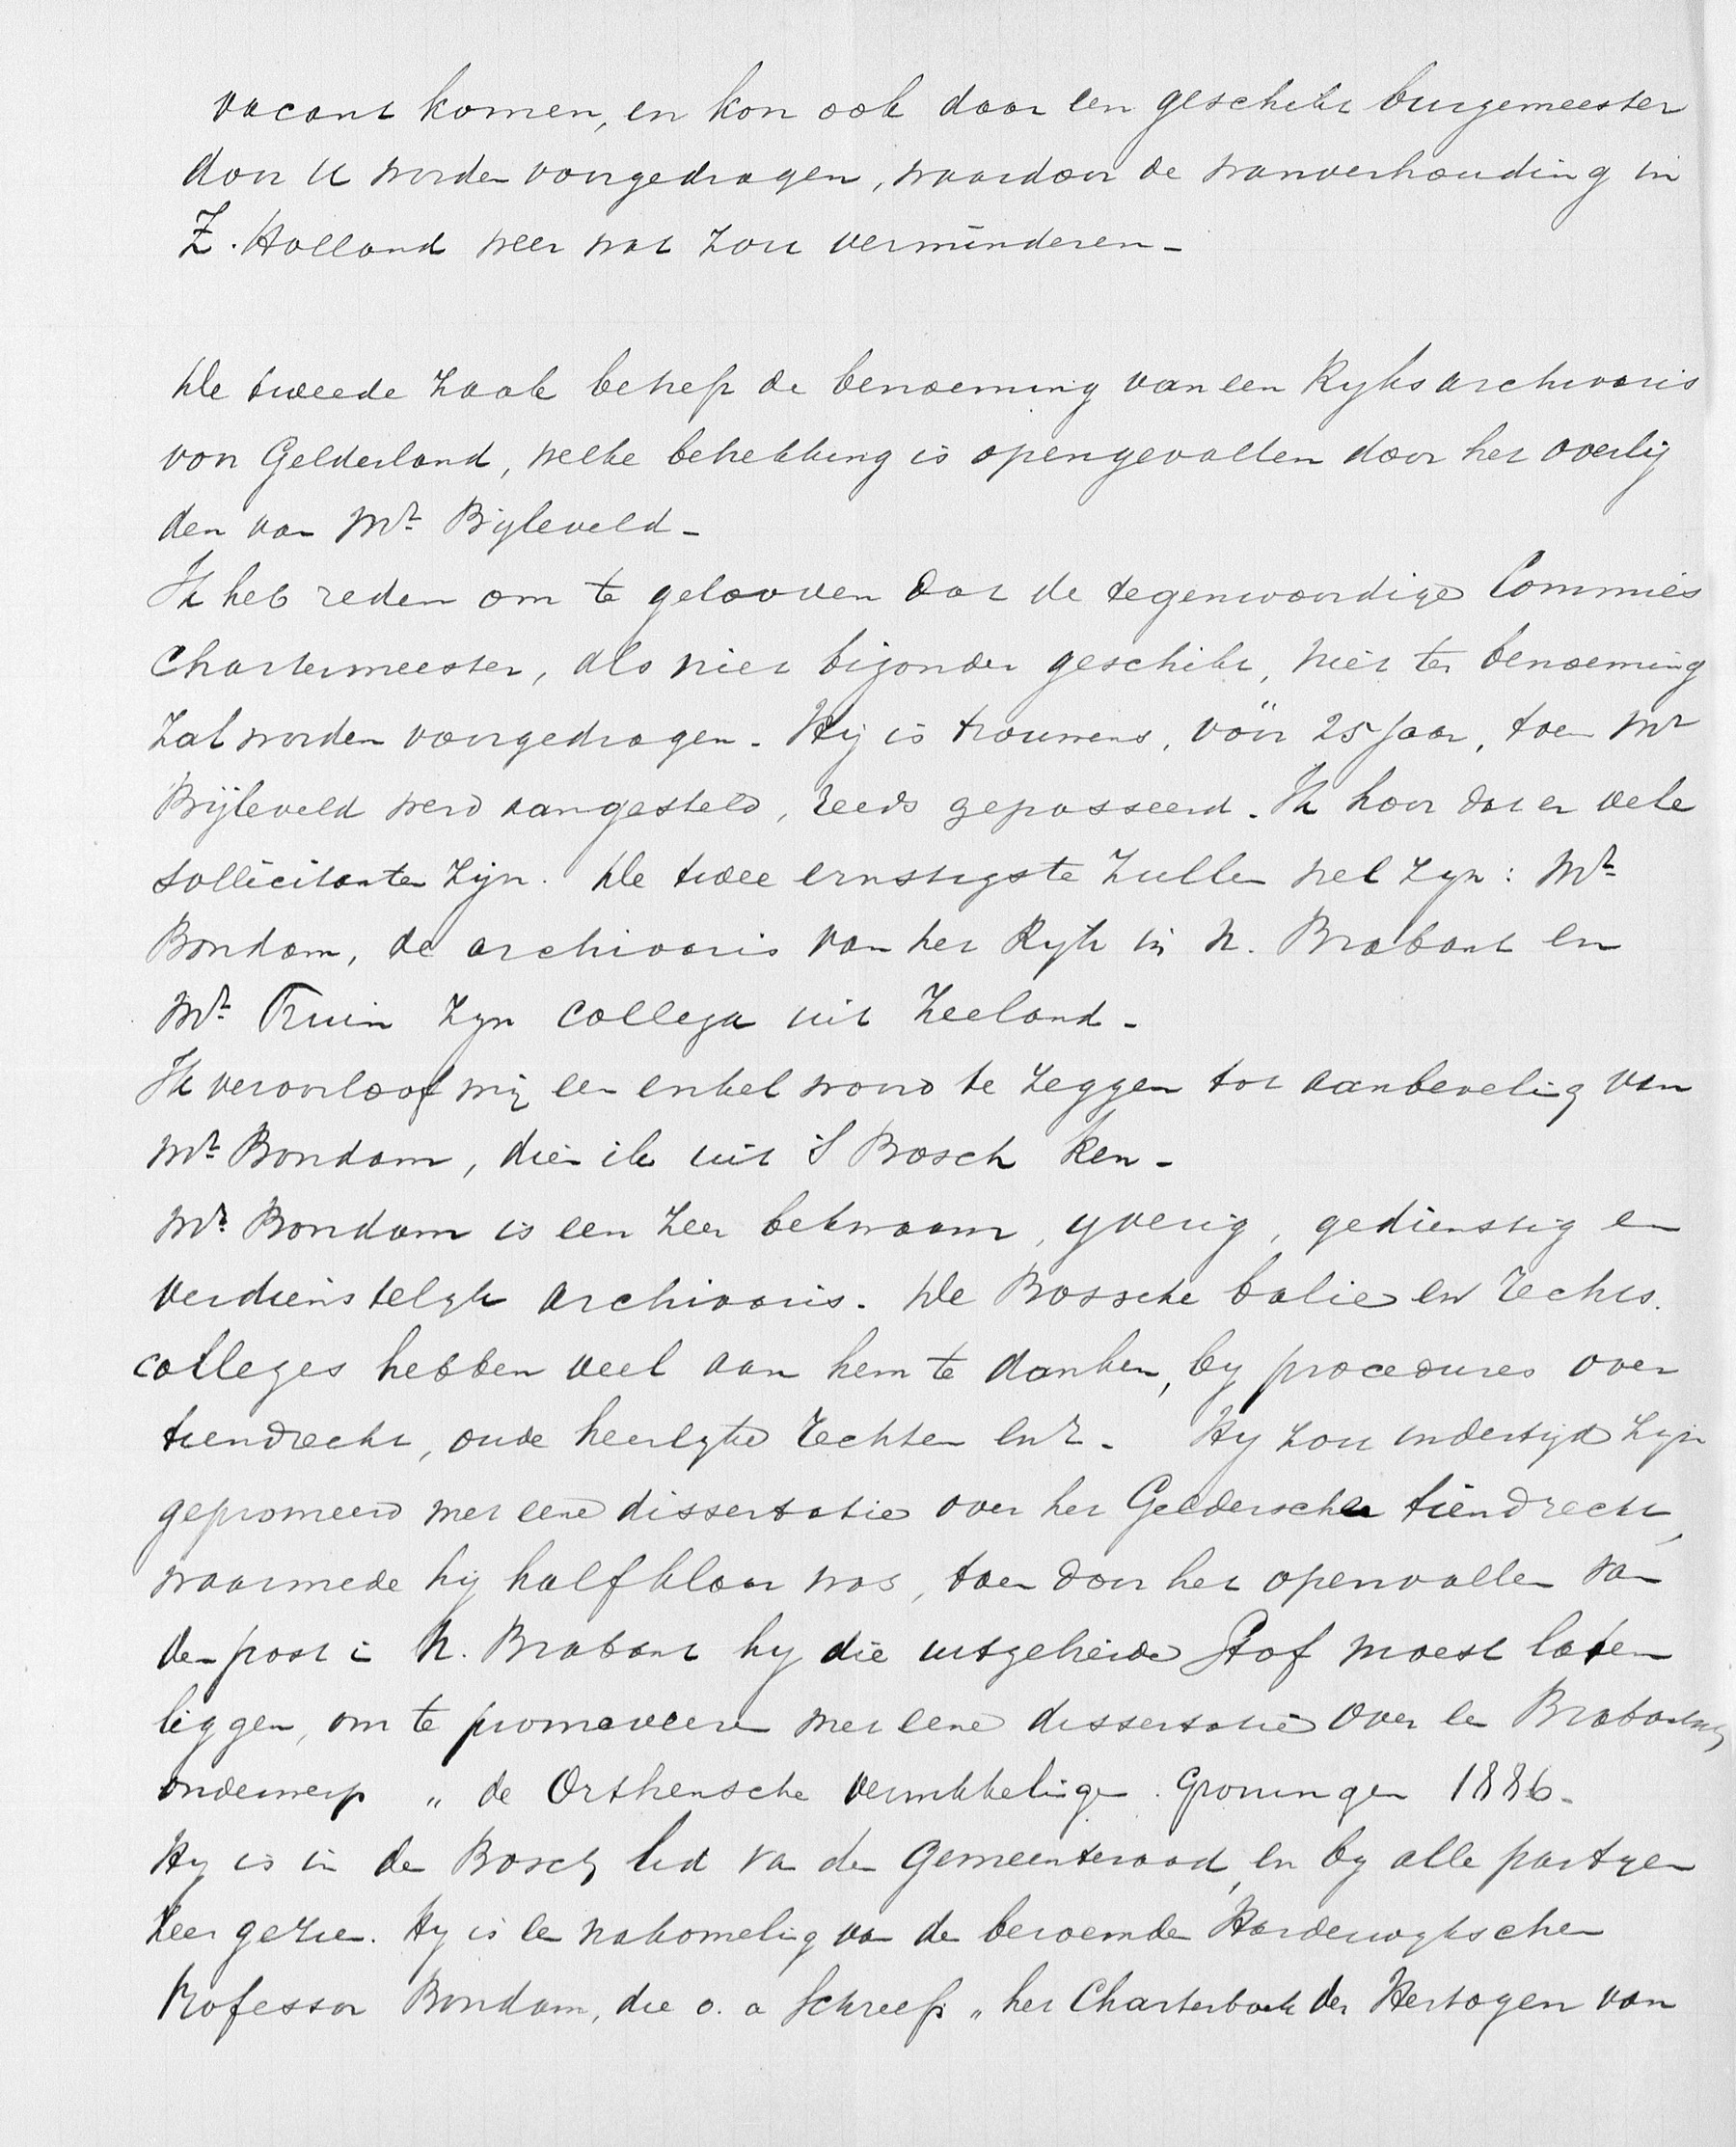 vacant komen, en kon ook daar een geschikt burgemeester
door U worden voorgedragen, waardoor de wanverhouding in
Z. Holland weer wat zou verminderen -
De tweede zaak betreft de benoeming van een Ryksarchivaris
van Gelderland, welke betrekking is opengevallen door het overlij
den van Mr. Bijleveld -
Ik heb reden om te gelooven dat de tegenwoordige Commies
Chartermeester, als niet bijzonder geschikt, niet ter benoeming
zal worden voorgedragen. Hij is trouwens, vóór 25 jaar, toen Mr
Bijleveld werd aangesteld, reeds gepasseerd. Ik hoor dat er vele
sollicitanten zijn. De twee ernstigste zullen wel zyn: Mr.
Bondam, de archivaris van het Ryk in N. Brabant en
Mr. Fruin zyn collega uit Zeeland -
Ik veroorloof mij een enkel woord te zeggen tot aanbeveling van
Mr. Bondam, dien ik uit 's Bosch ken -
Mr. Bondam is een zeer bekwaam, yverig, gedienstig en
verdienstelyk archivaris. De Bossche balie en rechts.
colleges hebben veel aan hem te danken, by procedures over
tiendrecht, oude heerlyke rechten enz. Hy zou indertijd zijn
gepromeerd met eene dissertatie over het Geldersche tiendrecht,
waarmede hij half klaar was, toen door het openvallen van
den post in N. Brabant hy die uitgebreide stof moest laten
liggen, om te promoveeren met eene dissertatie over een Brabantsch
onderwerp „ de Orthensche verwikkelingen. Groningen 1886 -
Hy is in den Bosch lid van den Gemeenteraad, en by alle partyen
zeer gezien. Hy is een nakomeling van de beroemde Harderwyksche
Professor Bondam, die o. a schreef „ het Charterboek der Hertogen van